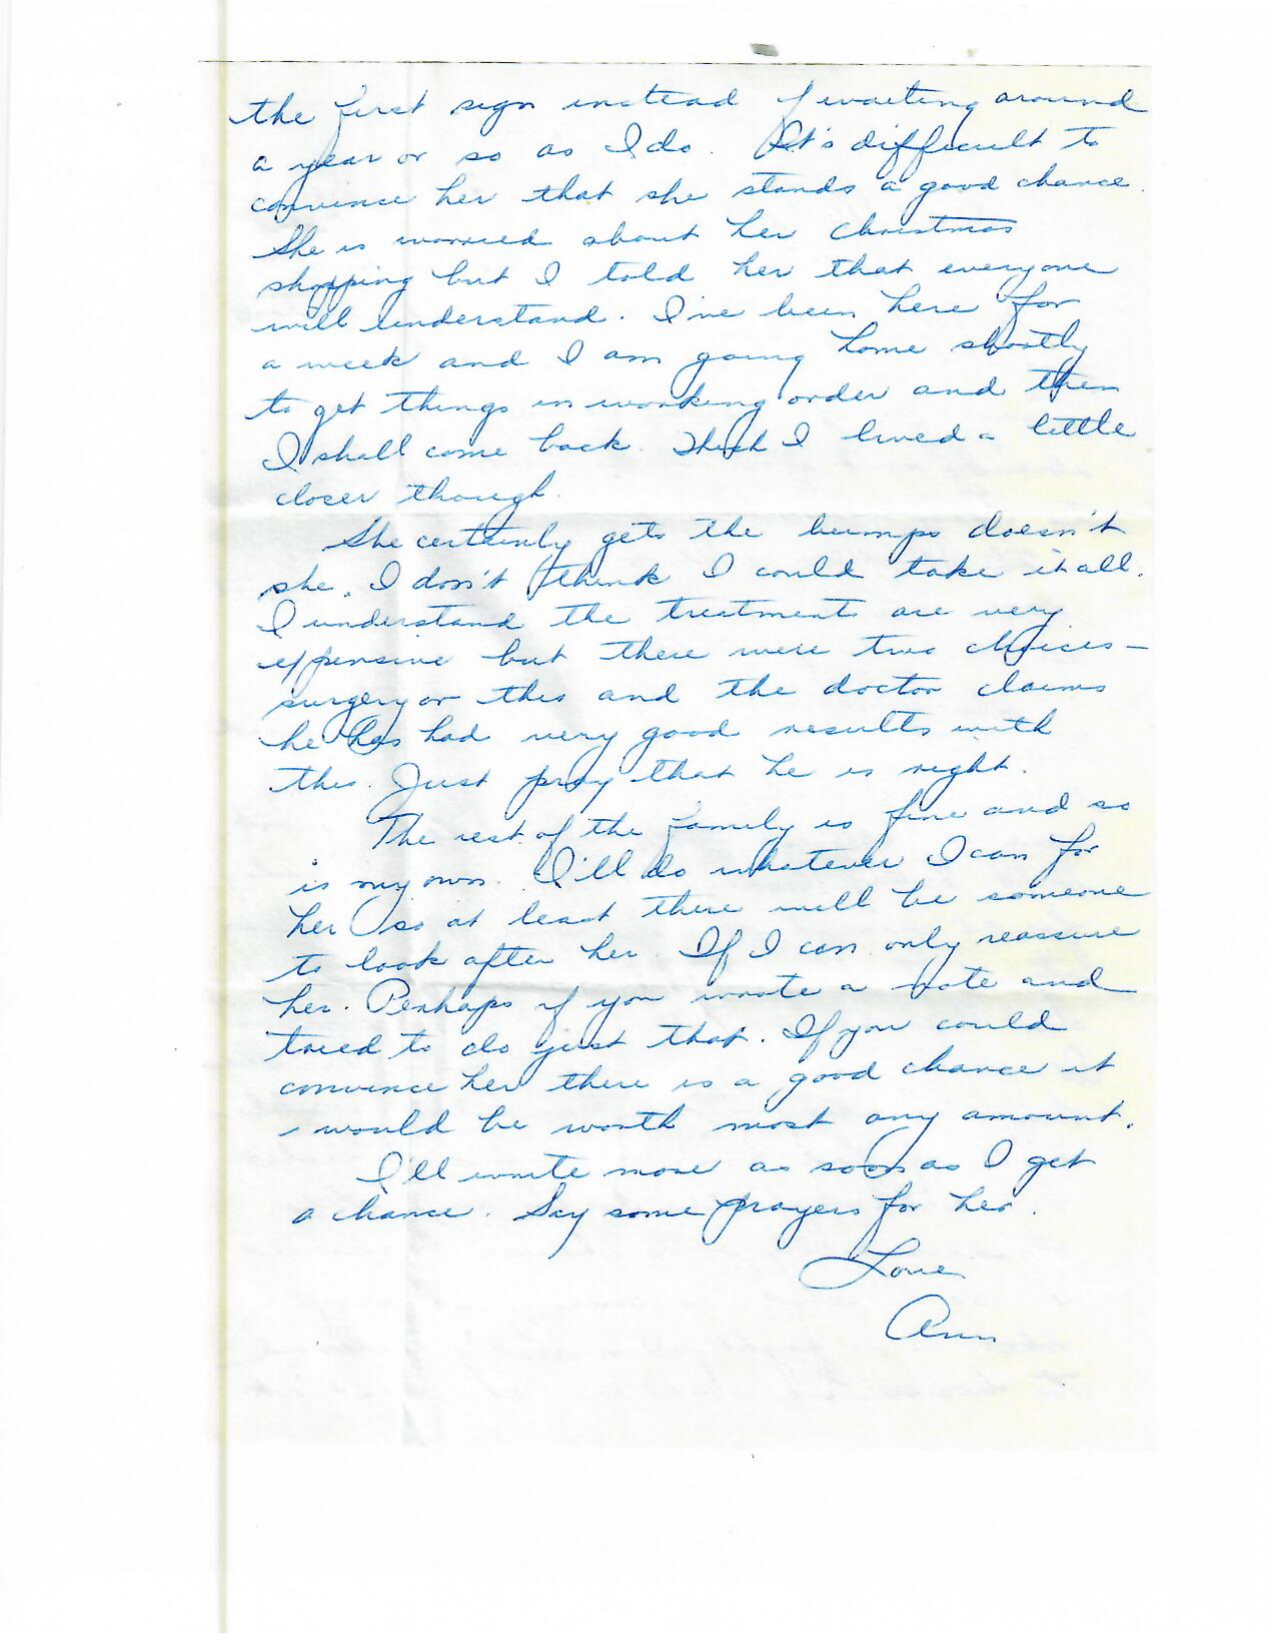 the first sign instead of waiting around
a year or so as I do. It's difficult to
convince her that she stands a good chance.
She is worried about her Christmas
shopping but I told her that everyone
will understand. I've been here for
a week and I am going home shortly
to get things in working order and then
I shall come back. I lived a little
closer though.
She certainly gets the bumps doesn't
she. I don't think I could take it all.
I understand the treatments are very
expensive but there were two choices -
surgery or this and the doctor claims
he has had very good results with
this. Just pray that he is right.
The rest of the family is fine and so
is my own. I'll do whatever I can for
her so at least there will be someone
to look after her. If I can only reassure
her. Perhaps if you wrote a note and
tried to do just that. If you could
convince her there is a good chance it
would be worth most any amount.
I'll write more as soon as I get
a chance. Say some prayers for her.
Love
Ann